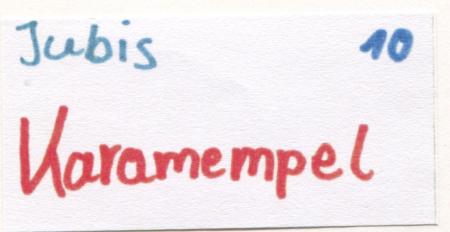 Jubis 10
Karamempel